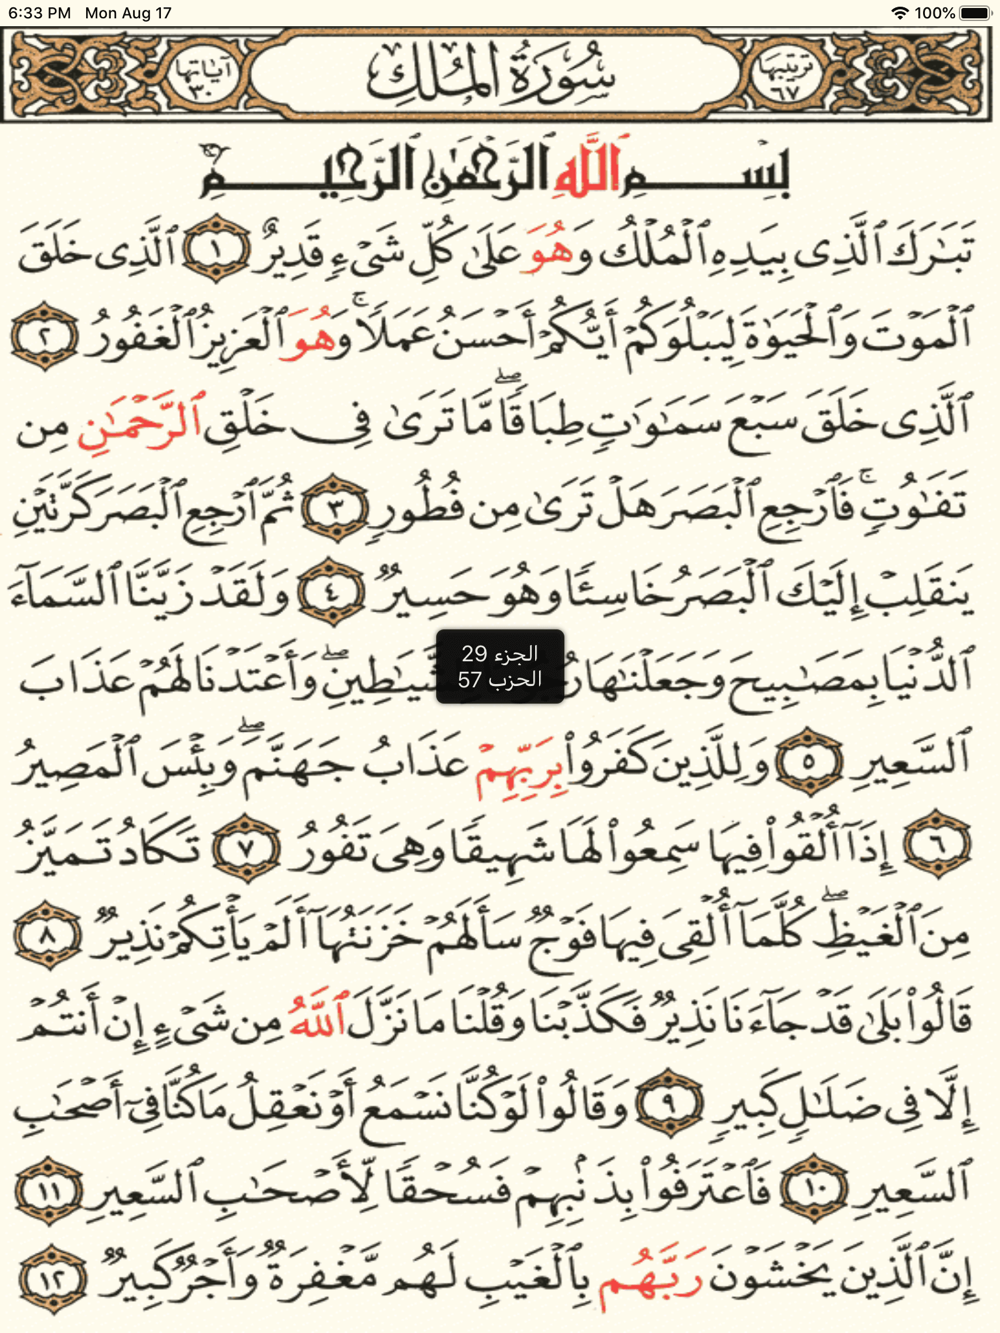 6:33 PM Mon Aug 17 100%
ترتيبها ٦٧ سُورَةُ المُلكِ آياتها ٣٠
بِسۡمِ ٱللَّهِ ٱلرَّحۡمَٰنِ ٱلرَّحِيمِ
تَبَٰرَكَ ٱلَّذِى بِيَدِهِ ٱلۡمُلۡكُ وَهُوَ عَلَىٰ كُلِّ شَىۡءٍ قَدِيرٌ ١ ٱلَّذِى خَلَقَ
ٱلۡمَوۡتَ وَٱلۡحَيَوٰةَ لِيَبۡلُوَكُمۡ أَيُّكُمۡ أَحۡسَنُ عَمَلًاۚ وَهُوَ ٱلۡعَزِيزُ ٱلۡغَفُورُ ٢
ٱلَّذِى خَلَقَ سَبۡعَ سَمَٰوَٰتٍ طِبَاقًاۖ مَّا تَرَىٰ فِى خَلۡقِ ٱلرَّحۡمَٰنِ مِن
تَفَٰوُتٍۚ فَٱرۡجِعِ ٱلۡبَصَرَ هَلۡ تَرَىٰ مِن فُطُورٍ ٣ ثُمَّ ٱرۡجِعِ ٱلۡبَصَرَ كَرَّتَيۡنِ
يَنقَلِبۡ إِلَيۡكَ ٱلۡبَصَرُ خَاسِئًا وَهُوَ حَسِيرٌ ٤ وَلَقَدۡ زَيَّنَّا ٱلسَّمَآءَ
ٱلدُّنۡيَا بِمَصَٰبِيحَ وَجَعَلۡنَٰهَا لِّلشَّيَٰطِينِۖ وَأَعۡتَدۡنَا لَهُمۡ عَذَابَ
الجزء 29
الحزب 57
ٱلسَّعِيرِ ٥ وَلِلَّذِينَ كَفَرُواْ بِرَبِّهِمۡ عَذَابُ جَهَنَّمَۖ وَبِئۡسَ ٱلۡمَصِيرُ
٦ إِذَآ أُلۡقُواْ فِيهَا سَمِعُواْ لَهَا شَهِيقًا وَهِىَ تَفُورُ ٧ تَكَادُ تَمَيَّزُ
مِنَ ٱلۡغَيۡظِۖ كُلَّمَآ أُلۡقِىَ فِيهَا فَوۡجٌ سَأَلَهُمۡ خَزَنَتُهَآ أَلَمۡ يَأۡتِكُمۡ نَذِيرٌ ٨
قَالُواْ بَلَىٰ قَدۡ جَآءَنَا نَذِيرٌ فَكَذَّبۡنَا وَقُلۡنَا مَا نَزَّلَ ٱللَّهُ مِن شَىۡءٍ إِنۡ أَنتُمۡ
إِلَّا فِى ضَلَٰلٍ كَبِيرٍ ٩ وَقَالُواْ لَوۡ كُنَّا نَسۡمَعُ أَوۡ نَعۡقِلُ مَا كُنَّا فِىٓ أَصۡحَٰبِ
ٱلسَّعِيرِ ١٠ فَٱعۡتَرَفُواْ بِذَنۢبِهِمۡ فَسُحۡقًا لِّأَصۡحَٰبِ ٱلسَّعِيرِ ١١
إِنَّ ٱلَّذِينَ يَخۡشَوۡنَ رَبَّهُم بِٱلۡغَيۡبِ لَهُم مَّغۡفِرَةٌ وَأَجۡرٌ كَبِيرٌ ١٢